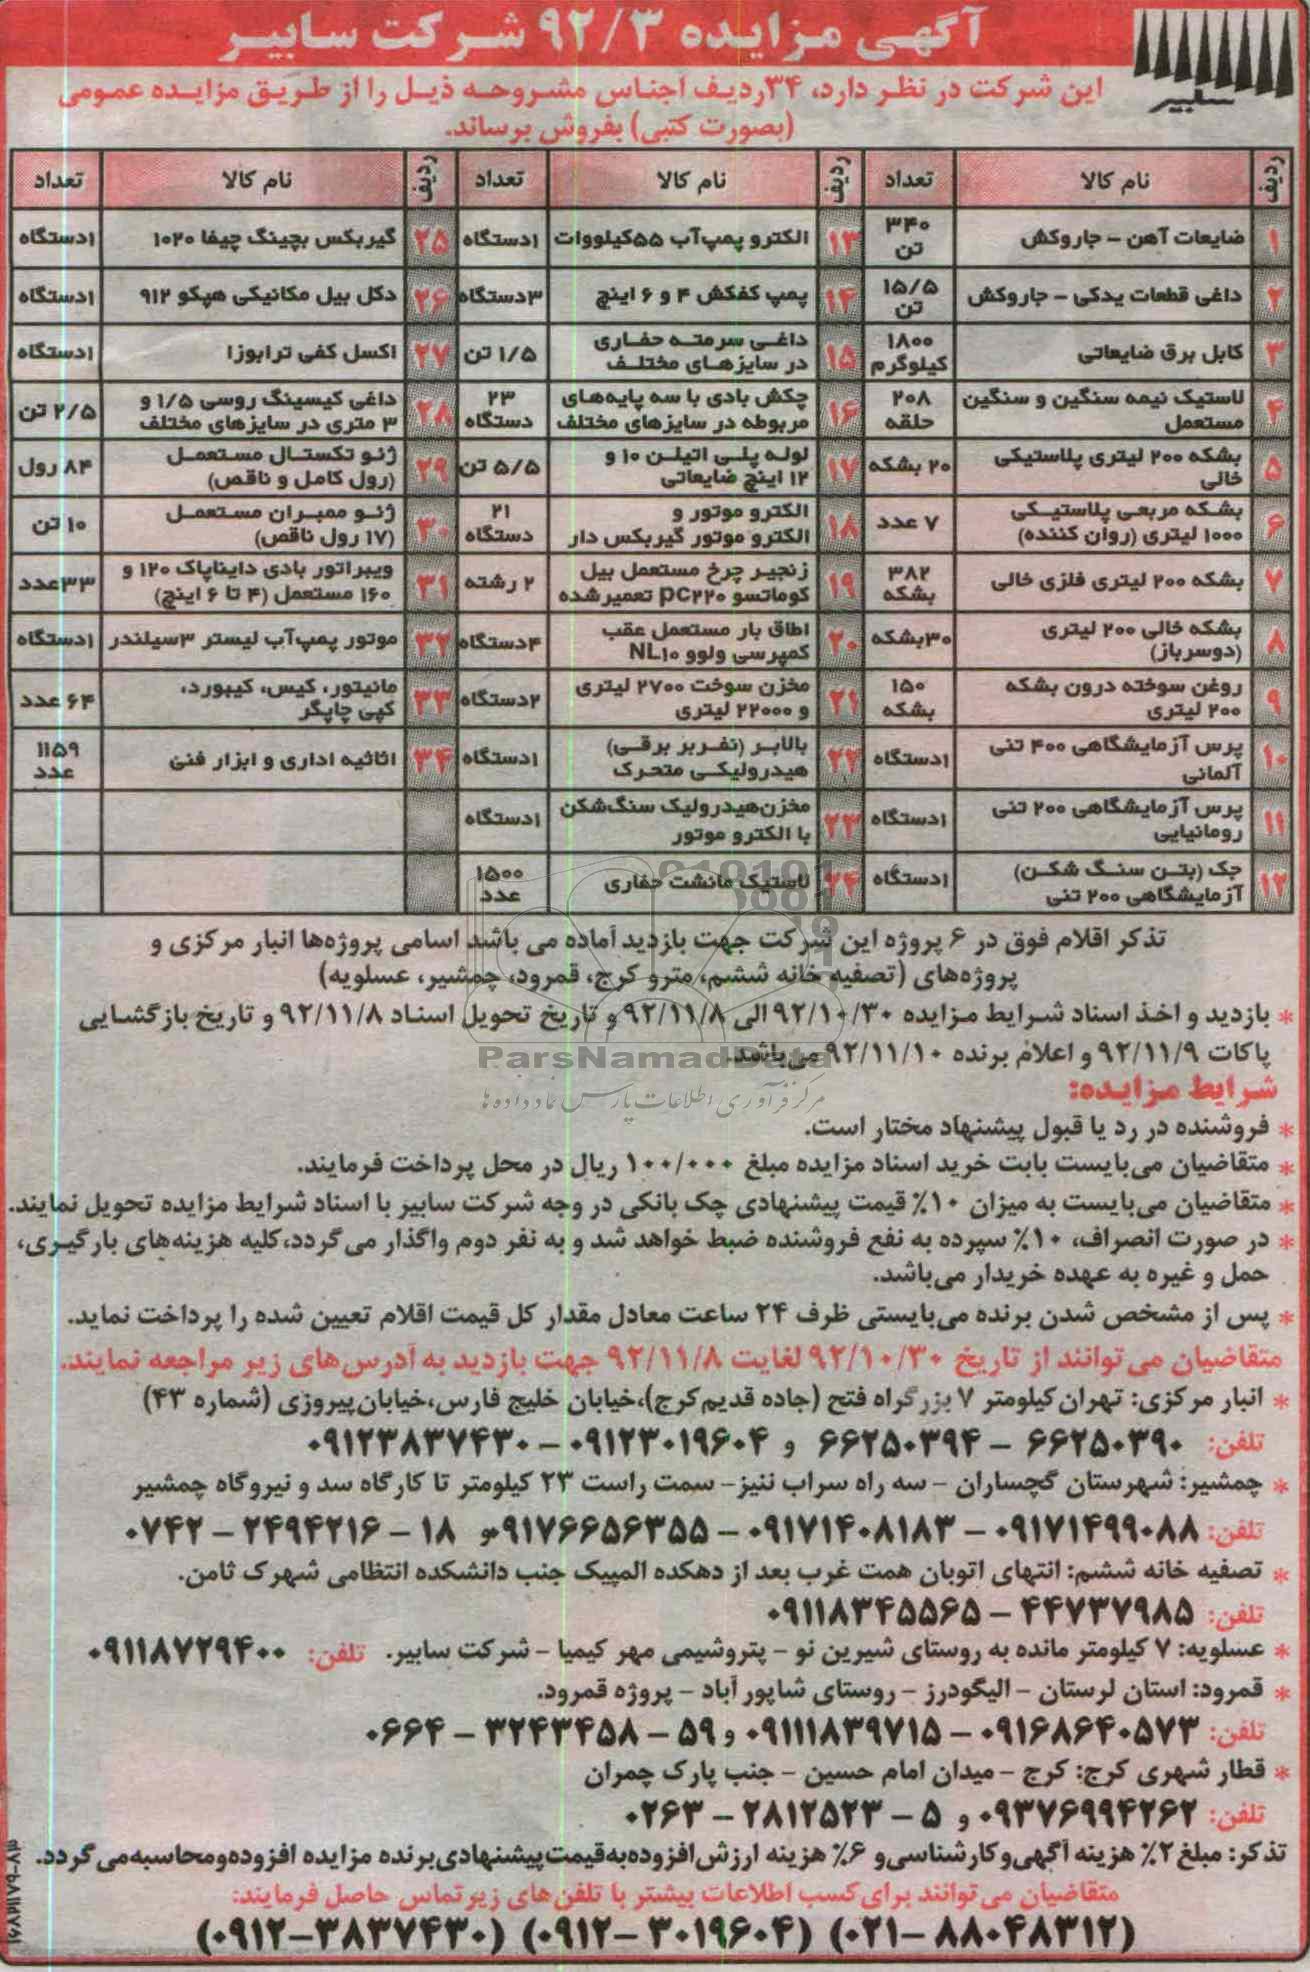 آگهی مزایده ۹۲/۳ شرکت سابیر
سابیر
این شرکت در نظر دارد، ۳۴ردیف اجناس مشروحه ذیل را از طریق مزایده عمومی
(بصورت کتبی) بفروش برساند.
ردیف | نام کالا | تعداد | ردیف | نام کالا | تعداد | ردیف | نام کالا | تعداد
۱ | ضایعات آهن - جاروکش | ۳۴۰ تن | ۱۳ | الکترو پمپ‌آب ۵۵کیلووات | ۱دستگاه | ۲۵ | گیربکس بچینگ چیفا ۱۰۲۰ | ۱دستگاه
۲ | داغی قطعات یدکی - جاروکش | ۱۵/۵ تن | ۱۴ | پمپ کفکش ۴ و ۶ اینچ | ۳دستگاه | ۲۶ | دکل بیل مکانیکی هپکو ۹۱۲ | ۱دستگاه
۳ | کابل برق ضایعاتی | ۱۸۰۰ کیلوگرم | ۱۵ | داغی سرمته حفاری در سایزهای مختلف | ۱/۵ تن | ۲۷ | اکسل کفی ترابوزا | ۱دستگاه
۴ | لاستیک نیمه سنگین و سنگین مستعمل | ۲۰۸ حلقه | ۱۶ | چکش بادی با سه پایه‌های مربوطه در سایزهای مختلف | ۲۳ دستگاه | ۲۸ | داغی کیسینگ روسی ۱/۵ و ۳ متری در سایزهای مختلف | ۲/۵ تن
۵ | بشکه ۲۰۰ لیتری پلاستیکی خالی | ۲۰ بشکه | ۱۷ | لوله پلی اتیلن ۱۰ و ۱۲ اینچ ضایعاتی | ۵/۵ تن | ۲۹ | ژئو تکستال مستعمل (رول کامل و ناقص) | ۸۴ رول
۶ | بشکه مربعی پلاستیکی ۱۰۰۰ لیتری (روان کننده) | ۷ عدد | ۱۸ | الکترو موتور و الکترو موتور گیربکس دار | ۲۱ دستگاه | ۳۰ | ژئو ممبران مستعمل (۱۷ رول ناقص) | ۱۰ تن
۷ | بشکه ۲۰۰ لیتری فلزی خالی | ۳۸۲ بشکه | ۱۹ | زنجیر چرخ مستعمل بیل کوماتسو pc۲۲۰ تعمیرشده | ۲ رشته | ۳۱ | ویبراتور بادی دایناپاک ۱۲۰ و ۱۶۰ مستعمل (۴ تا ۶ اینچ) | ۳۳عدد
۸ | بشکه خالی ۲۰۰ لیتری (دوسرباز) | ۳۰بشکه | ۲۰ | اطاق بار مستعمل عقب کمپرسی ولوو NL۱۰ | ۴دستگاه | ۳۲ | موتور پمپ‌آب لیستر ۳سیلندر | ۱دستگاه
۹ | روغن سوخته درون بشکه ۲۰۰ لیتری | ۱۵۰ بشکه | ۲۱ | مخزن سوخت ۲۷۰۰ لیتری و ۲۲۰۰۰ لیتری | ۲دستگاه | ۳۳ | مانیتور، کیس، کیبورد، کپی چاپگر | ۶۴ عدد
۱۰ | پرس آزمایشگاهی ۴۰۰ تنی آلمانی | ۱دستگاه | ۲۲ | بالابر (نفربر برقی) هیدرولیکی متحرک | ۱دستگاه | ۳۴ | اثاثیه اداری و ابزار فنی | ۱۱۵۹ عدد
۱۱ | پرس آزمایشگاهی ۲۰۰ تنی رومانیایی | ۱دستگاه | ۲۳ | مخزن‌هیدرولیک سنگ‌شکن با الکترو موتور | ۱دستگاه
۱۲ | جک (بتن سنگ شکن) آزمایشگاهی ۲۰۰ تنی | ۱دستگاه | ۲۴ | لاستیک مانشت حفاری | ۱۵۰۰ عدد
تذکر اقلام فوق در ۶ پروژه این شرکت جهت بازدید آماده می باشد اسامی پروژه‌ها انبار مرکزی و
پروژه‌های (تصفیه خانه ششم، مترو کرج، قمرود، چمشیر، عسلویه)
* بازدید و اخذ اسناد شرایط مزایده ۹۲/۱۰/۳۰ الی ۹۲/۱۱/۸ و تاریخ تحویل اسناد ۹۲/۱۱/۸ و تاریخ بازگشایی
پاکات ۹۲/۱۱/۹ و اعلام برنده ۹۲/۱۱/۱۰ می‌باشد.
ParsNamadData
مرکز فرآوری اطلاعات پارس نماد داده ها
شرایط مزایده:
* فروشنده در رد یا قبول پیشنهاد مختار است.
* متقاضیان می‌بایست بابت خرید اسناد مزایده مبلغ ۱۰۰/۰۰۰ ریال در محل پرداخت فرمایند.
* متقاضیان می‌بایست به میزان ۱۰٪ قیمت پیشنهادی چک بانکی در وجه شرکت سابیر با اسناد شرایط مزایده تحویل نمایند.
* در صورت انصراف، ۱۰٪ سپرده به نفع فروشنده ضبط خواهد شد و به نفر دوم واگذار می‌گردد،کلیه هزینه‌های بارگیری،
حمل و غیره به عهده خریدار می‌باشد.
* پس از مشخص شدن برنده می‌بایستی ظرف ۲۴ ساعت معادل مقدار کل قیمت اقلام تعیین شده را پرداخت نماید.
متقاضیان می‌توانند از تاریخ ۹۲/۱۰/۳۰ لغایت ۹۲/۱۱/۸ جهت بازدید به آدرس‌های زیر مراجعه نمایند.
* انبار مرکزی: تهران کیلومتر ۷ بزرگراه فتح (جاده قدیم کرج)،خیابان خلیج فارس،خیابان پیروزی (شماره ۴۳)
تلفن: ۶۶۲۵۰۳۹۰ - ۶۶۲۵۰۳۹۴ و ۰۹۱۲۳۰۱۹۶۰۴ - ۰۹۱۲۳۸۳۷۴۳۰
* چمشیر: شهرستان گچساران - سه راه سراب ننیز- سمت راست ۲۳ کیلومتر تا کارگاه سد و نیروگاه چمشیر
تلفن: ۰۹۱۷۱۴۹۹۰۸۸ - ۰۹۱۷۱۴۰۸۱۸۳ - ۰۹۱۷۶۶۵۶۳۵۵ و ۱۸ - ۲۴۹۴۲۱۶ - ۰۷۴۲
* تصفیه خانه ششم: انتهای اتوبان همت غرب بعد از دهکده المپیک جنب دانشکده انتظامی شهرک ثامن.
تلفن: ۴۴۷۳۷۹۸۵ - ۰۹۱۱۸۳۴۵۵۶۵
* عسلویه: ۷ کیلومتر مانده به روستای شیرین نو - پتروشیمی مهر کیمیا - شرکت سابیر. تلفن: ۰۹۱۱۸۷۲۹۴۰۰
* قمرود: استان لرستان - الیگودرز - روستای شاپور آباد - پروژه قمرود.
تلفن: ۰۹۱۶۸۶۴۰۵۷۳ - ۰۹۱۱۱۸۳۹۷۱۵ و ۵۹ - ۳۲۴۳۴۵۸ - ۰۶۶۴
* قطار شهری کرج: کرج - میدان امام حسین - جنب پارک چمران
تلفن: ۰۹۳۷۶۹۹۴۲۶۲ و ۵ - ۲۸۱۲۵۲۳ - ۰۲۶۳
تذکر: مبلغ ۲٪ هزینه آگهی و کارشناسی و ۶٪ هزینه ارزش افزوده به قیمت پیشنهادی برنده مزایده افزوده و محاسبه می گردد.
متقاضیان می‌توانند برای کسب اطلاعات بیشتر با تلفن‌های زیر تماس حاصل فرمایند:
(۰۲۱-۸۸۰۴۸۳۱۲) (۰۹۱۲-۳۰۱۹۶۰۴) (۰۹۱۲-۳۸۳۷۴۳۰)